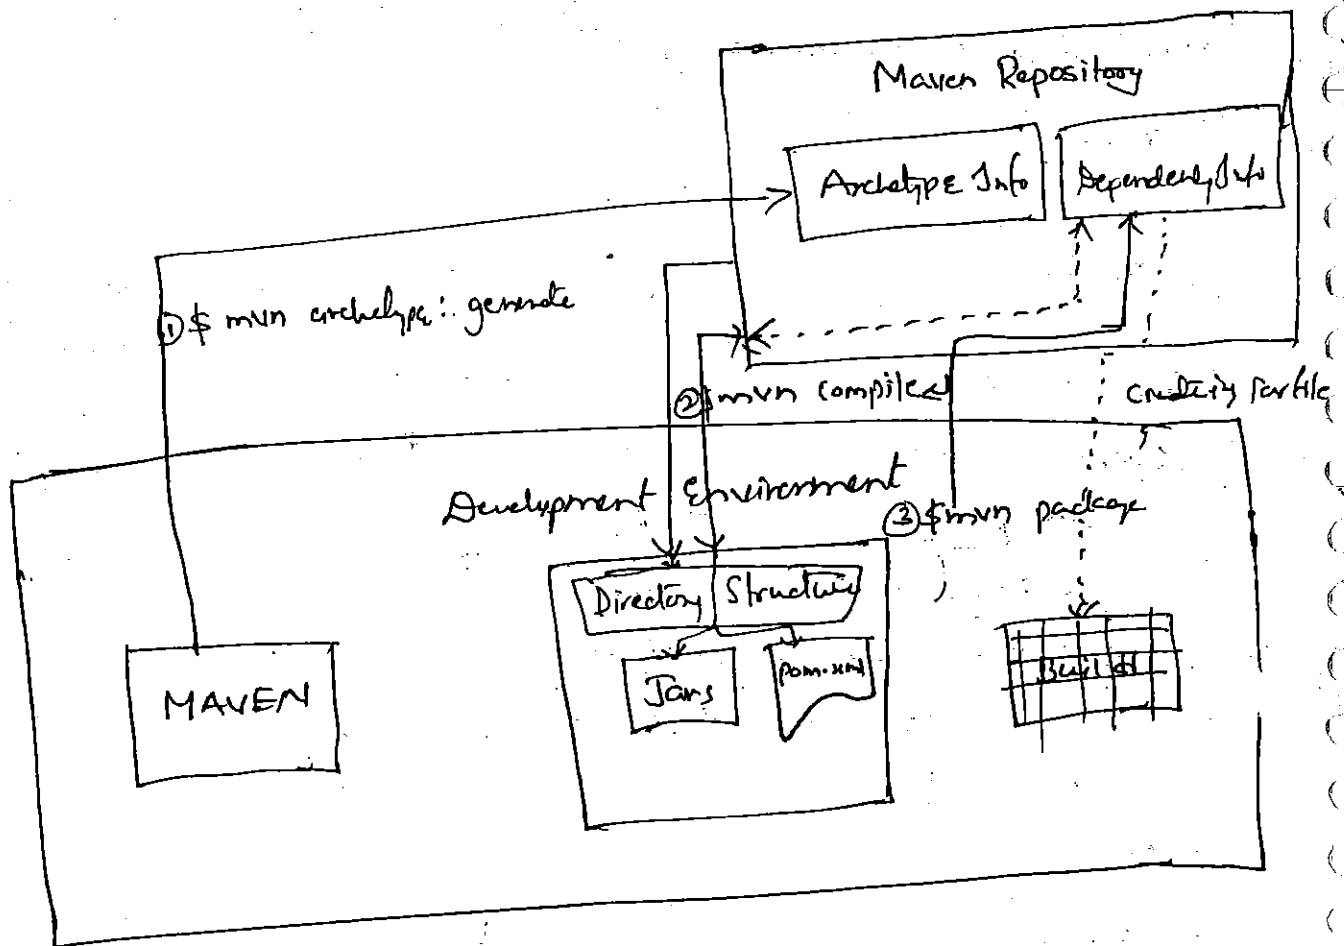 Maven Repository
Archetype Info
Dependency Info
① $ mvn archetype: generate
② $ mvn compile
creating jar file
Development Environment
③ $ mvn package
Directory Structure
MAVEN
Jars
pom.xml
Build